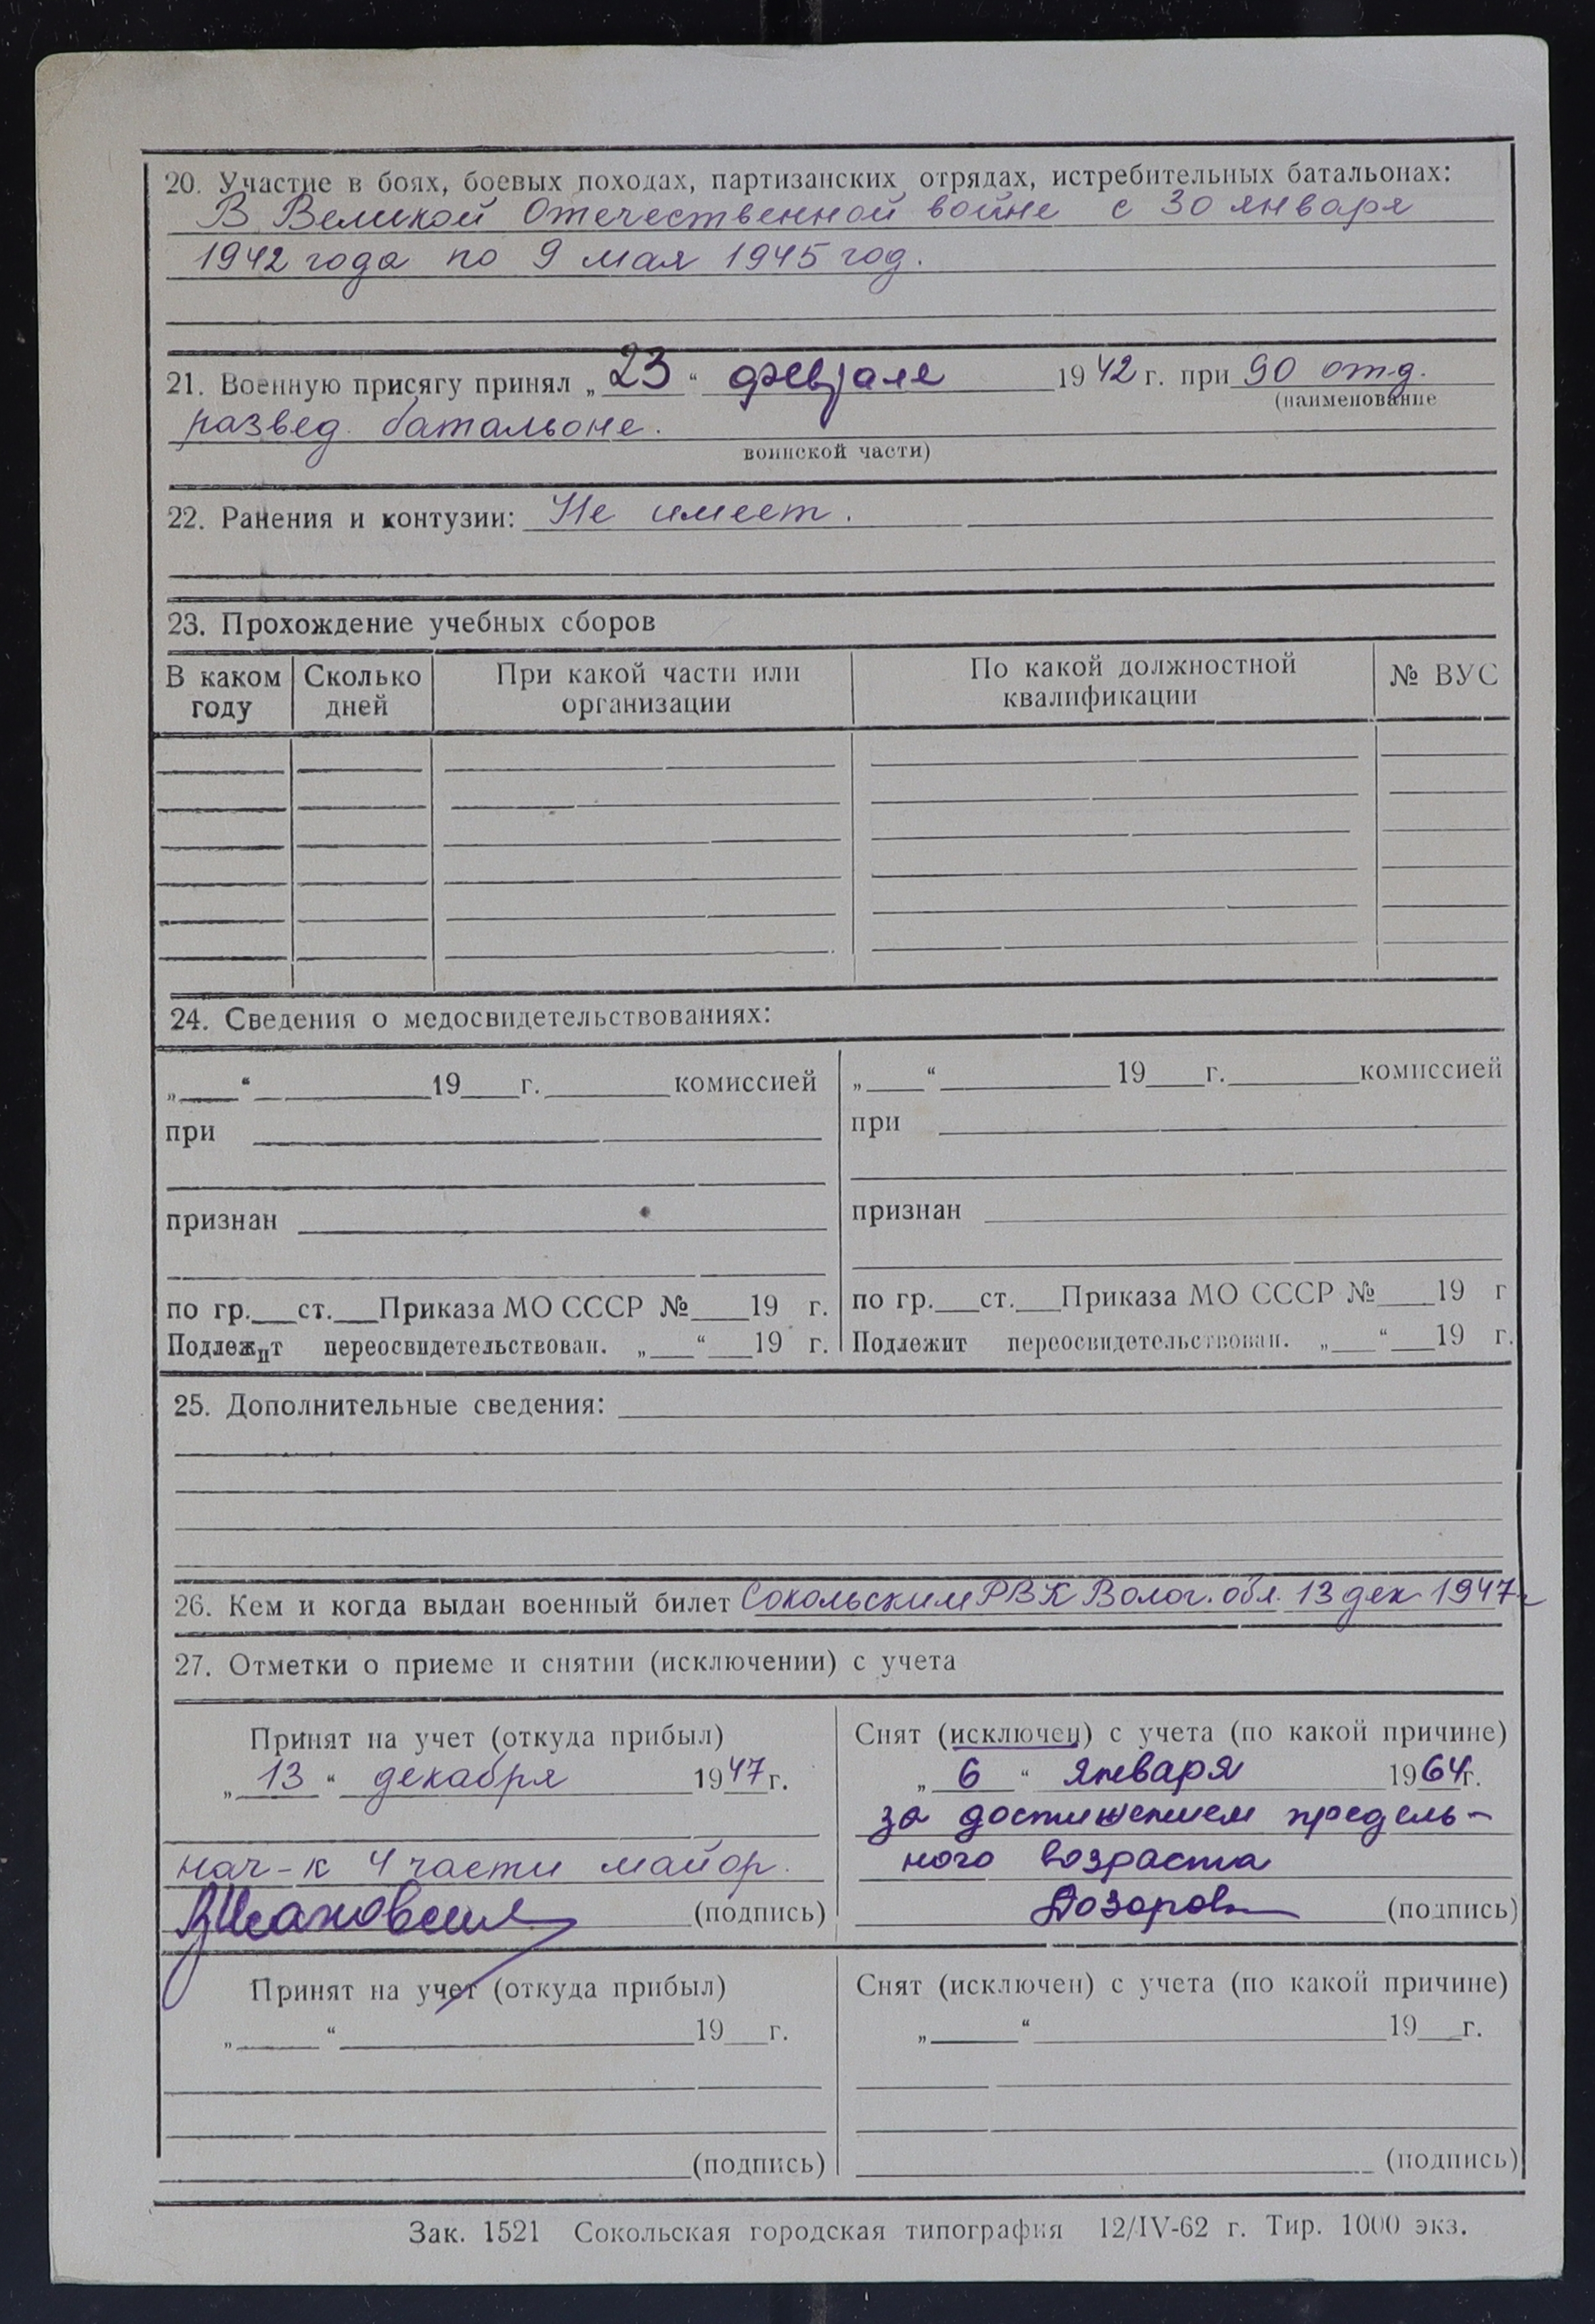 20. Участие в боях, боевых походах, партизанских отрядах, истребительных батальонах:
В Великой Отечественной войне с 30 января
1942 года по 9 мая 1945 год.
21. Военную присягу принял „23“ февраля 1942 г. при 90 отд.
(наименование
развед. батальоне.
воинской части)
22. Ранения и контузии: Не имеет.
23. Прохождение учебных сборов
В каком году Сколько дней При какой части или организации По какой должностной квалификации № ВУС
24. Сведения о медосвидетельствованиях:
„___“ ___ 19___г. ___ комиссией
при
признан
по гр.___ст.___Приказа МО СССР №___19 г.
Подлежит переосвидетельствован. „___“___19 г.
„___“ ___ 19___г. ___комиссией
при
признан
по гр.___ст.___Приказа МО СССР №___19 г
Подлежит переосвидетельствован. „___“___19 г.
25. Дополнительные сведения:
26. Кем и когда выдан военный билет Сокольским РВК Волог. обл. 13 дек 1947 г
27. Отметки о приеме и снятии (исключении) с учета
Принят на учет (откуда прибыл)
„13“ декабря 1947 г.
нач-к 4 части майор.
(подпись)
Снят (исключен) с учета (по какой причине)
„6“ января 1964 г.
за достижением предель-
ного возраста
Дозоров (подпись)
Принят на учет (откуда прибыл)
„___“ ___ 19___г.
(подпись)
Снят (исключен) с учета (по какой причине)
„___“ ___ 19___г.
(подпись)
Зак. 1521 Сокольская городская типография 12/IV-62 г. Тир. 1000 экз.